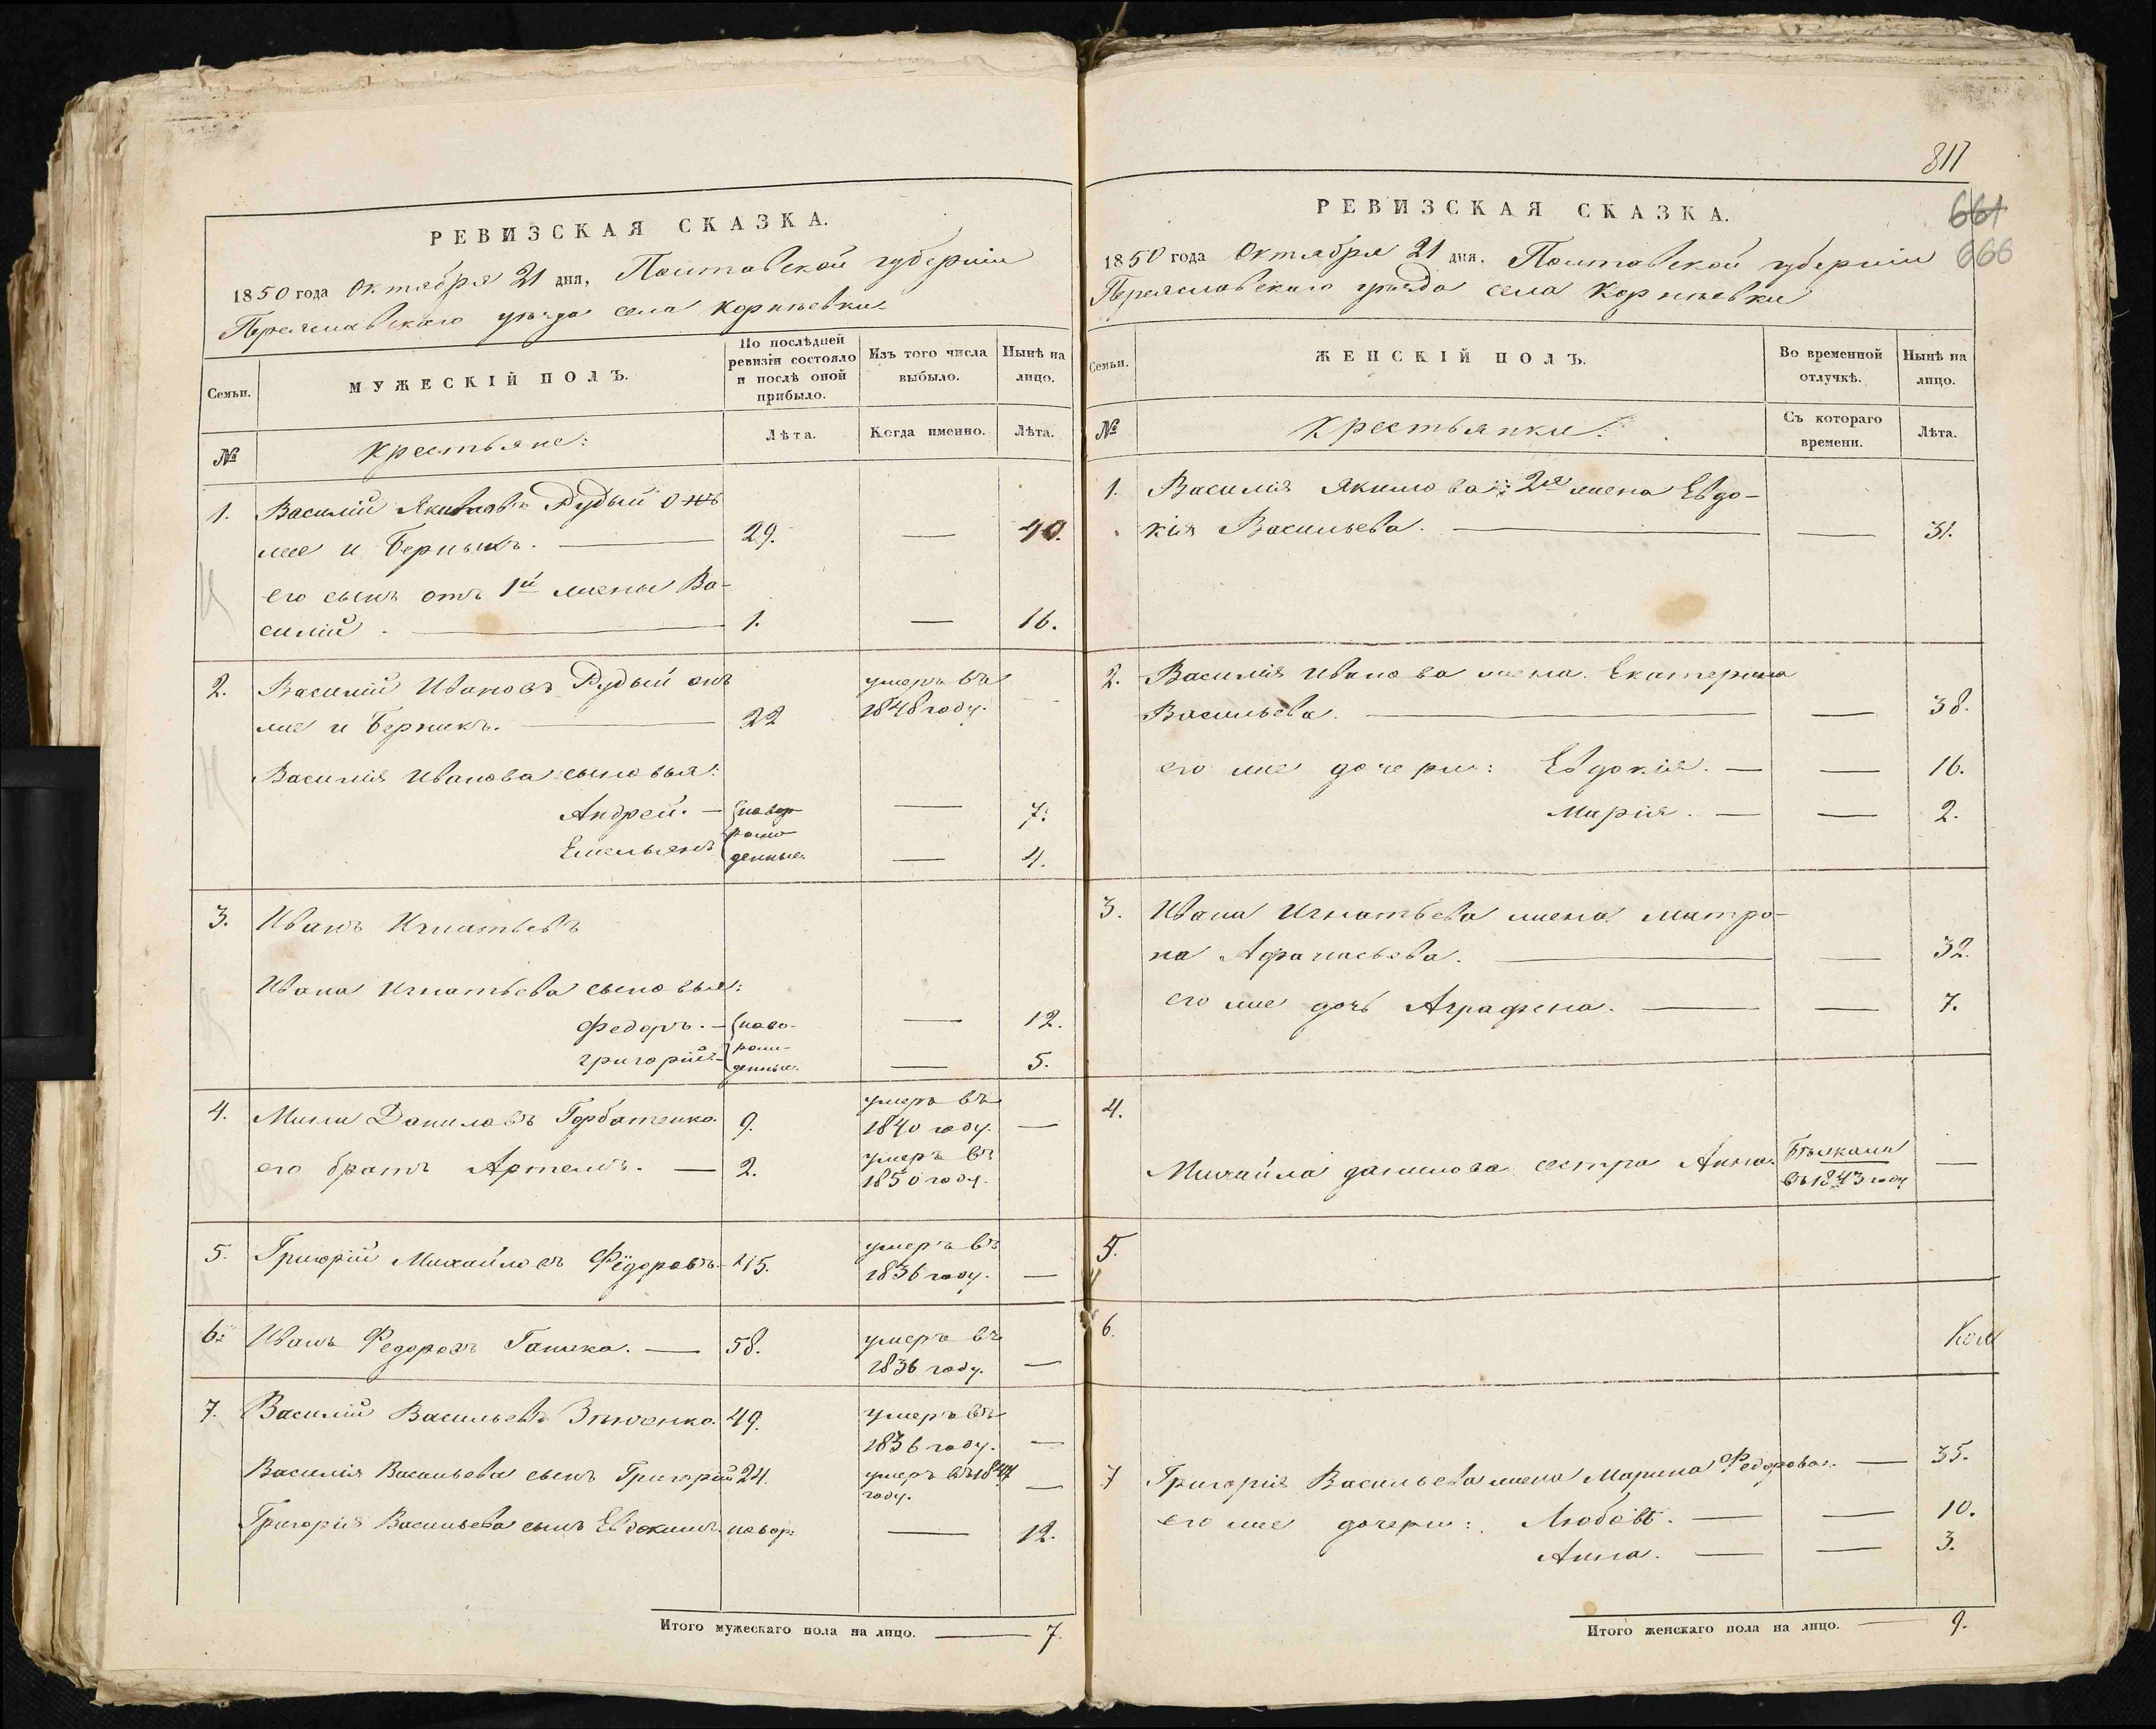 РЕВИЗСКАЯ СКАЗКА.
1850 года Октября 21 дня, Полтавской губерніи
Переяславскаго уѣзда села Корнѣевки
Семьи.
МУЖЕСКІЙ ПОЛЪ.
По послѣдней ревизіи состояло и послѣ оной прибыло.
Изъ того числа выбыло.
Нынѣ на лицо.
№
Крестьяне:
Лѣта.
Когда именно.
Лѣта.
1. Василий Якимовъ Рудый онъ
же и Берникъ. — 29. — 40.
его сынъ отъ 1й жены Ва-
силій. — 1. — 16.
2. Василій Ивановъ Рудый онъ умеръ въ
же и Берникъ. — 22 1848 году. —
Василія Иванова сыновья:
Андрей. — новор — 7.
Емельянъ рож
денные. — 4.
3. Иванъ Игнатьевъ
Ивана Игнатьева сыновья:
Федоръ. — ново- — 12.
Григорій — рож-
денные. — 5.
4. Мина Даниловъ Горбатенко. 9. умеръ въ
1840 году. —
его братъ Артемъ. — 2. умеръ въ
1850 году.
5. Григорій Михайловъ Фёдоровъ. 45. умеръ въ
1836 году. —
6. Иванъ Федоровъ Ганжа. — 58. умеръ въ
1836 году. —
7. Василій Васильевъ 49. умеръ въ
1836 году. —
Василія Васильева сынъ Григорій 24. умеръ въ 1847
году. —
Григорія Васильева сынъ Евдокимъ новор: — 12.
Итого мужескаго пола на лицо. — 7.
817
661
666
РЕВИЗСКАЯ СКАЗКА.
1850 года Октября 21 дня, Полтавской губерніи
Переяславскаго уѣзда села Корнѣевки
Семьи.
ЖЕНСКІЙ ПОЛЪ.
Во временной отлучкѣ.
Нынѣ на лицо.
№
Крестьянки:
Съ котораго времени.
Лѣта.
1. Василія Якимова 2я жена Евдо-
кія Васильева. — — 31.
2. Василія Иванова жена Екатерина
Васильева. — — 38.
его же дочери: Евдокія. — — 16.
Марія. — — 2.
3. Ивана Игнатьева жена Матро-
на Афанасьева. — — 32.
его же дочь Аграфена. — — 7.
4.
Михайла Данилова сестра Анна.
въ 1843 году —
5.
6.
7 Григорія Васильева жена Марина Федорова. — 35.
его же дочери: Любовь. — — 10.
Анна. — — 3.
Итого женскаго пола на лицо. — 9.